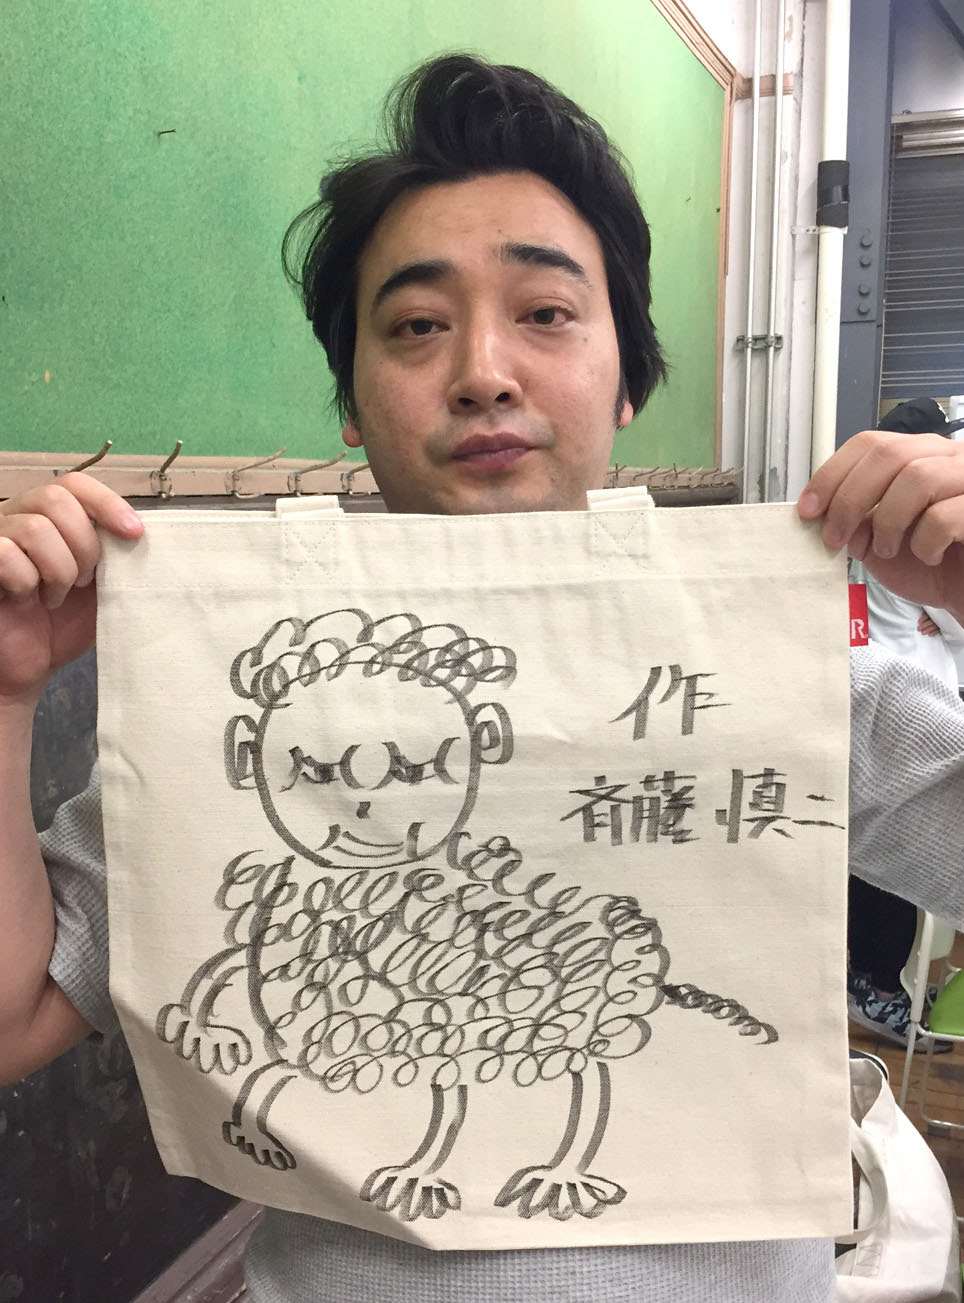 作
斉藤慎二
R